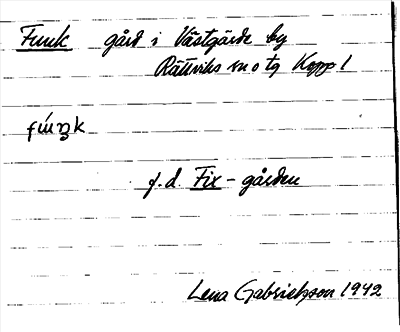 Funk gård i Västgärde by
Rättviks sn o tg Kopp l
fúŋk
f.d. Fix-gården
Lena Gabrielsson 1942